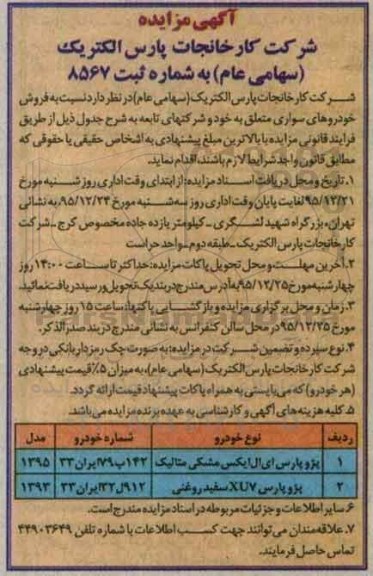 آگهی مزایده
شرکت کارخانجات پارس الکتریک
(سهامی عام) به شماره ثبت ۸۵۶۷
شرکت کارخانجات پارس الکتریک (سهامی عام) در نظر دارد نسبت به فروش
خودروهای سواری متعلق به خود و شرکتهای تابعه به شرح جدول ذیل از طریق
فرایند قانونی مزایده با بالاترین مبلغ پیشنهادی به اشخاص حقیقی یا حقوقی که
مطابق قانون واجد شرایط لازم باشند، اقدام نماید.
۱. تاریخ و محل دریافت اسناد مزایده: از ابتدای وقت اداری روز شنبه مورخ
۹۵/۱۲/۲۱ لغایت پایان وقت اداری روز سه‌شنبه مورخ ۹۵/۱۲/۲۴، به نشانی
تهران، بزرگراه شهید لشگری - کیلومتر یازده جاده مخصوص کرج - شرکت
کارخانجات پارس الکتریک - طبقه دوم - واحد حراست
۲. آخرین مهلت و محل تحویل پاکات مزایده: حداکثر تا ساعت ۱۴:۰۰ روز
چهارشنبه مورخ ۹۵/۱۲/۲۵ به آدرس مندرج در بند یک تحویل و رسید دریافت نمائید.
۳. زمان و محل برگزاری مزایده و بازگشایی پاکتها: ساعت ۱۵ روز چهارشنبه
مورخ ۹۵/۱۲/۲۵ در محل سالن کنفرانس به نشانی مندرج در بند صدرالذکر.
۴. نوع سپرده و تضمین شرکت در مزایده: به صورت چک رمزدار بانکی در وجه
شرکت کارخانجات پارس الکتریک (سهامی عام)، به میزان ۵٪ قیمت پیشنهادی
(هر خودرو) که می‌بایستی به همراه پاکات پیشنهاد قیمت ارائه گردد.
۵. کلیه هزینه‌های آگهی و کارشناسی به عهده برنده مزایده می‌باشد.
ردیف نوع خودرو شماره خودرو مدل
۱ پژو پارس ای‌ال‌ایکس مشکی متالیک ۱۴۲ب۷۹ ایران ۳۳ ۱۳۹۵
۲ پژو پارس XU7 سفید روغنی ۹۱۲ل۳۲ ایران ۳۳ ۱۳۹۳
۶. سایر اطلاعات و جزئیات مربوطه در اسناد مزایده مندرج است.
۷. علاقه‌مندان می‌توانند جهت کسب اطلاعات با شماره تلفن ۴۴۹۰۳۶۴۹
تماس حاصل فرمایند.